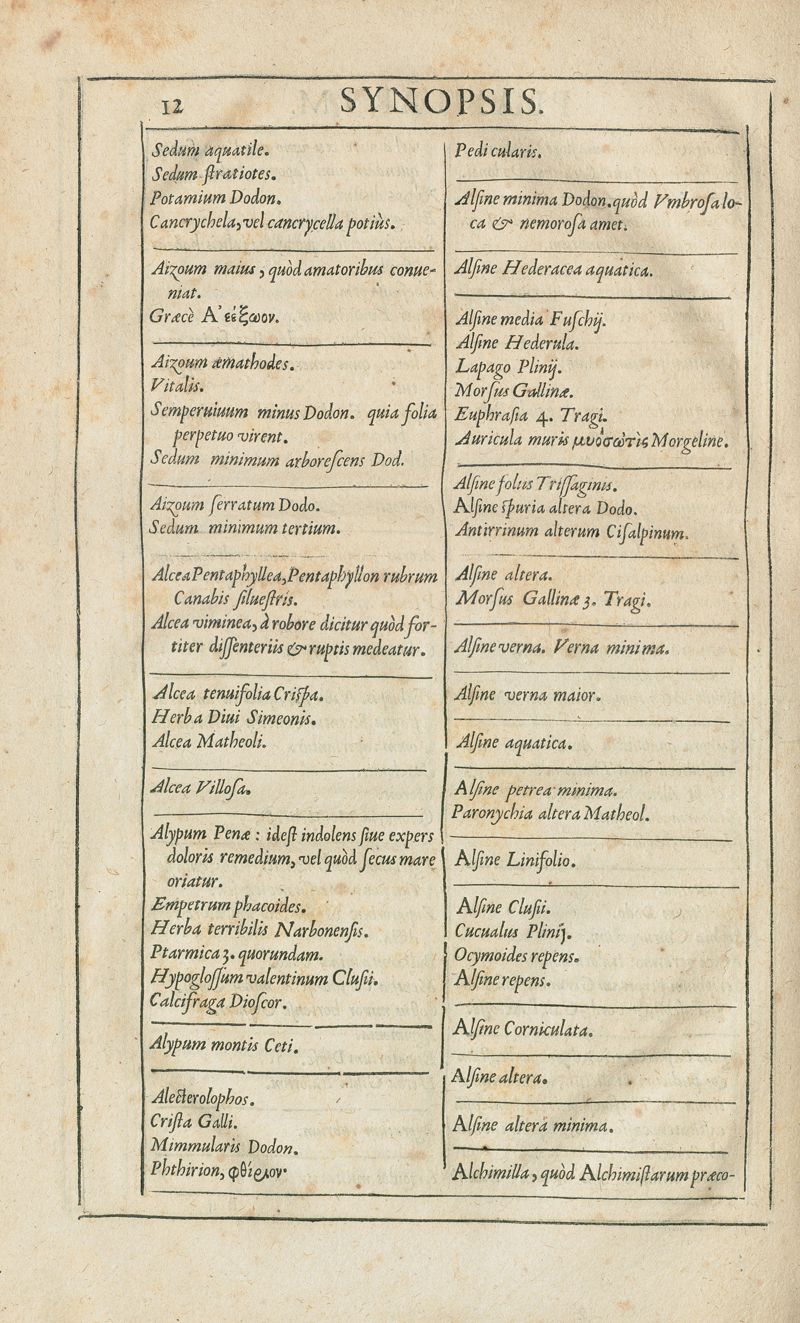 12
SYNOPSIS.
Sedum aquatile.
Sedum ſtratiotes.
Potamium Dodon.
Cancrychela, vel cancrycella potiùs.
Aizoum maius, quòd amatoribus conue-
niat.
Græcè Ἀείζωον.
Aizoum æmathodes.
Vitalis.
Semperuiuum minus Dodon. quia folia
perpetuo virent.
Sedum minimum arboreſcens Dod.
Aizoum ſerratum Dodo.
Sedum minimum tertium.
Alcea Pentaphyllea, Pentaphyllon rubrum
Canabis ſilueſtris.
Alcea viminea, à robore dicitur quòd for-
titer diſſenteriis & ruptis medeatur.
Alcea tenuifolia Criſpa.
Herba Diui Simeonis.
Alcea Matheoli.
Alcea Villoſa.
Alypum Penæ : ideſt indolens ſiue expers
doloris remedium, vel quòd ſecus mare
oriatur.
Empetrum phacoides.
Herba terribilis Narbonenſis.
Ptarmica 3. quorundam.
Hypogloſſum valentinum Cluſii.
Calcifraga Dioſcor.
Alypum montis Ceti.
Alecterolophos.
Criſta Galli.
Mimmularis Dodon.
Phthirion, φθίριον·
Pedicularis.
Alſine minima Dodon. quòd Vmbroſa lo-
ca & nemoroſa amet.
Alſine Hederacea aquatica.
Alſine media Fuſchij.
Alſine Hederula.
Lapago Plinij.
Morſus Gallinæ.
Euphraſia 4. Tragi.
Auricula muris μυόσωτὶς Morgeline.
Alſine foliis Triſſaginis.
Alſine ſpuria altera Dodo.
Antirrinum alterum Ciſalpinum.
Alſine altera.
Morſus Gallinæ 3. Tragi.
Alſine verna. Verna minima.
Alſine verna maior.
Alſine aquatica.
Alſine petrea minima.
Paronychia altera Matheol.
Alſine Linifolio.
Alſine Cluſii.
Cucualus Plinij.
Ocymoides repens.
Alſine repens.
Alſine Corniculata.
Alſine altera.
Alſine altera minima.
Alchimilla, quòd Alchimiſtarum præco-